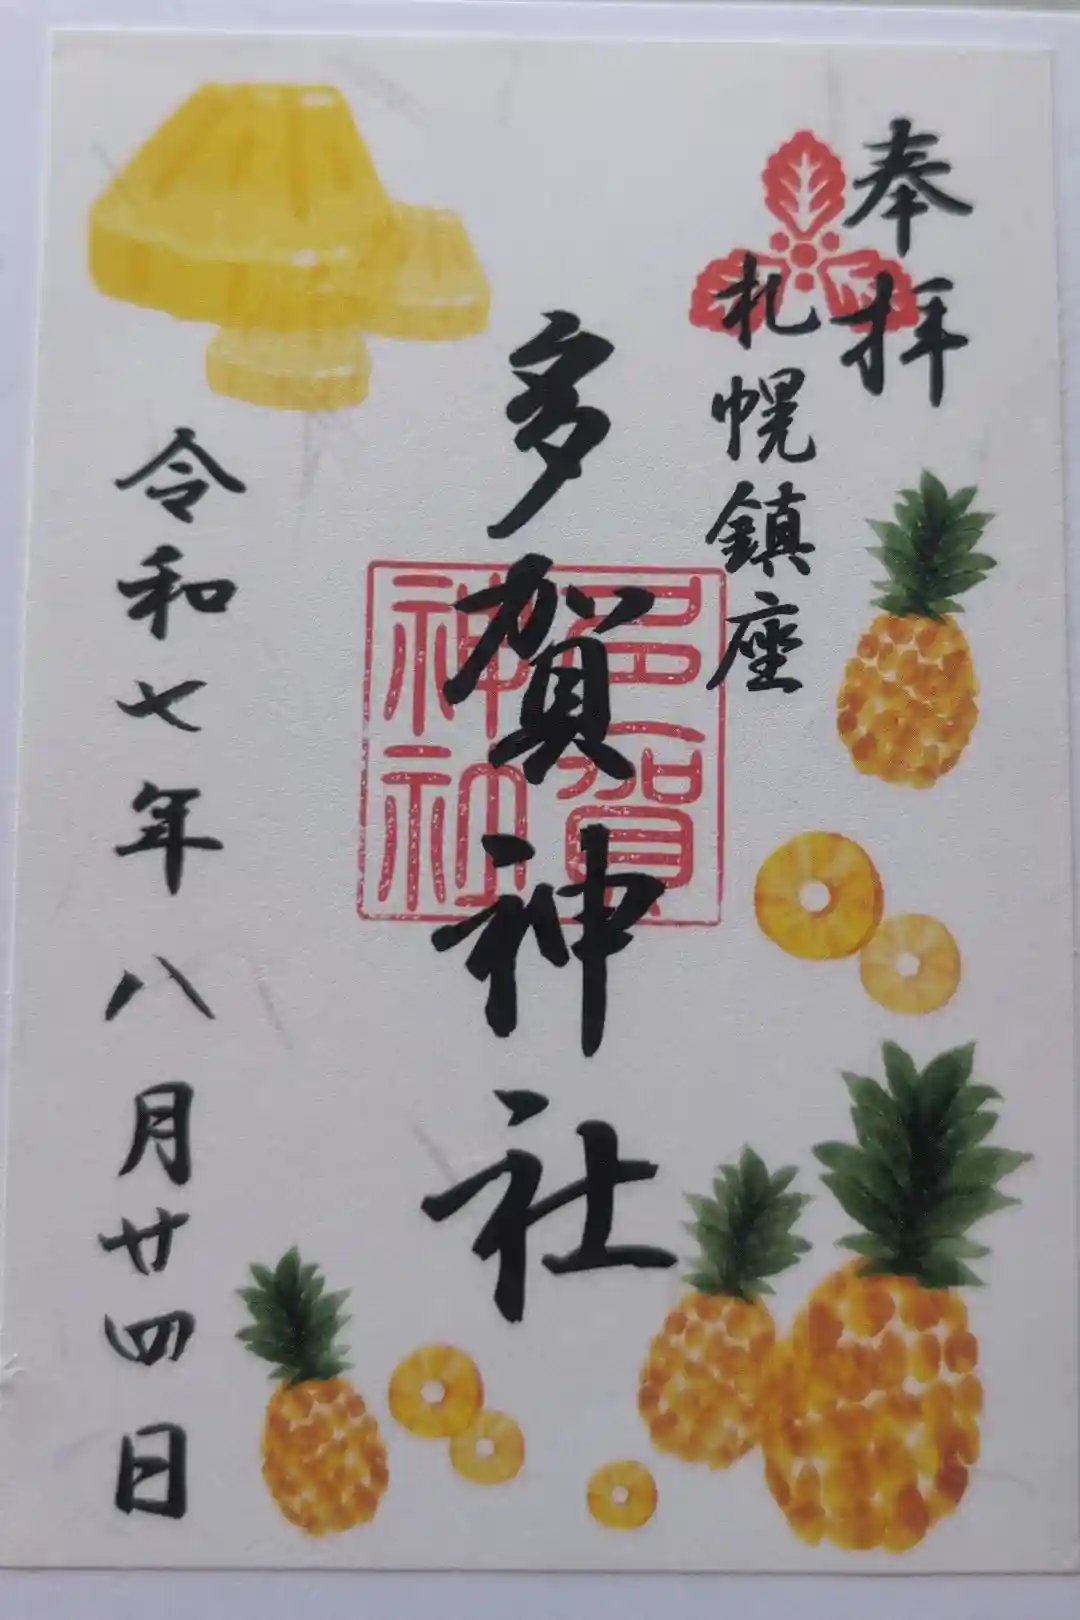 奉拝
札幌鎮座
多賀神社
多賀神社
令和七年八月廿四日